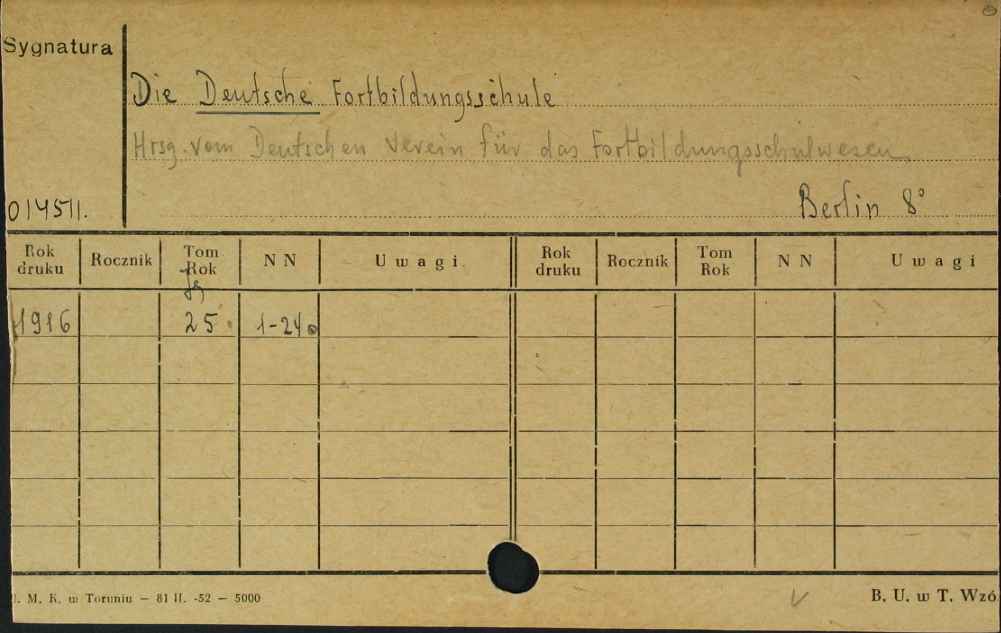 Sygnatura
Die Deutsche Fortbildungsschule
Hrsg. vom Deutschen Verein für das Fortbildungsschulwesen
Berlin 8°
014511.
Rok druku Rocznik Tom Rok N N U w a g i Rok druku Rocznik Tom Rok N N U w a g i
Jg
1916 25 1-24
M. K. w Toruniu — 81 II. -52 — 5000
B. U. w T. Wzó